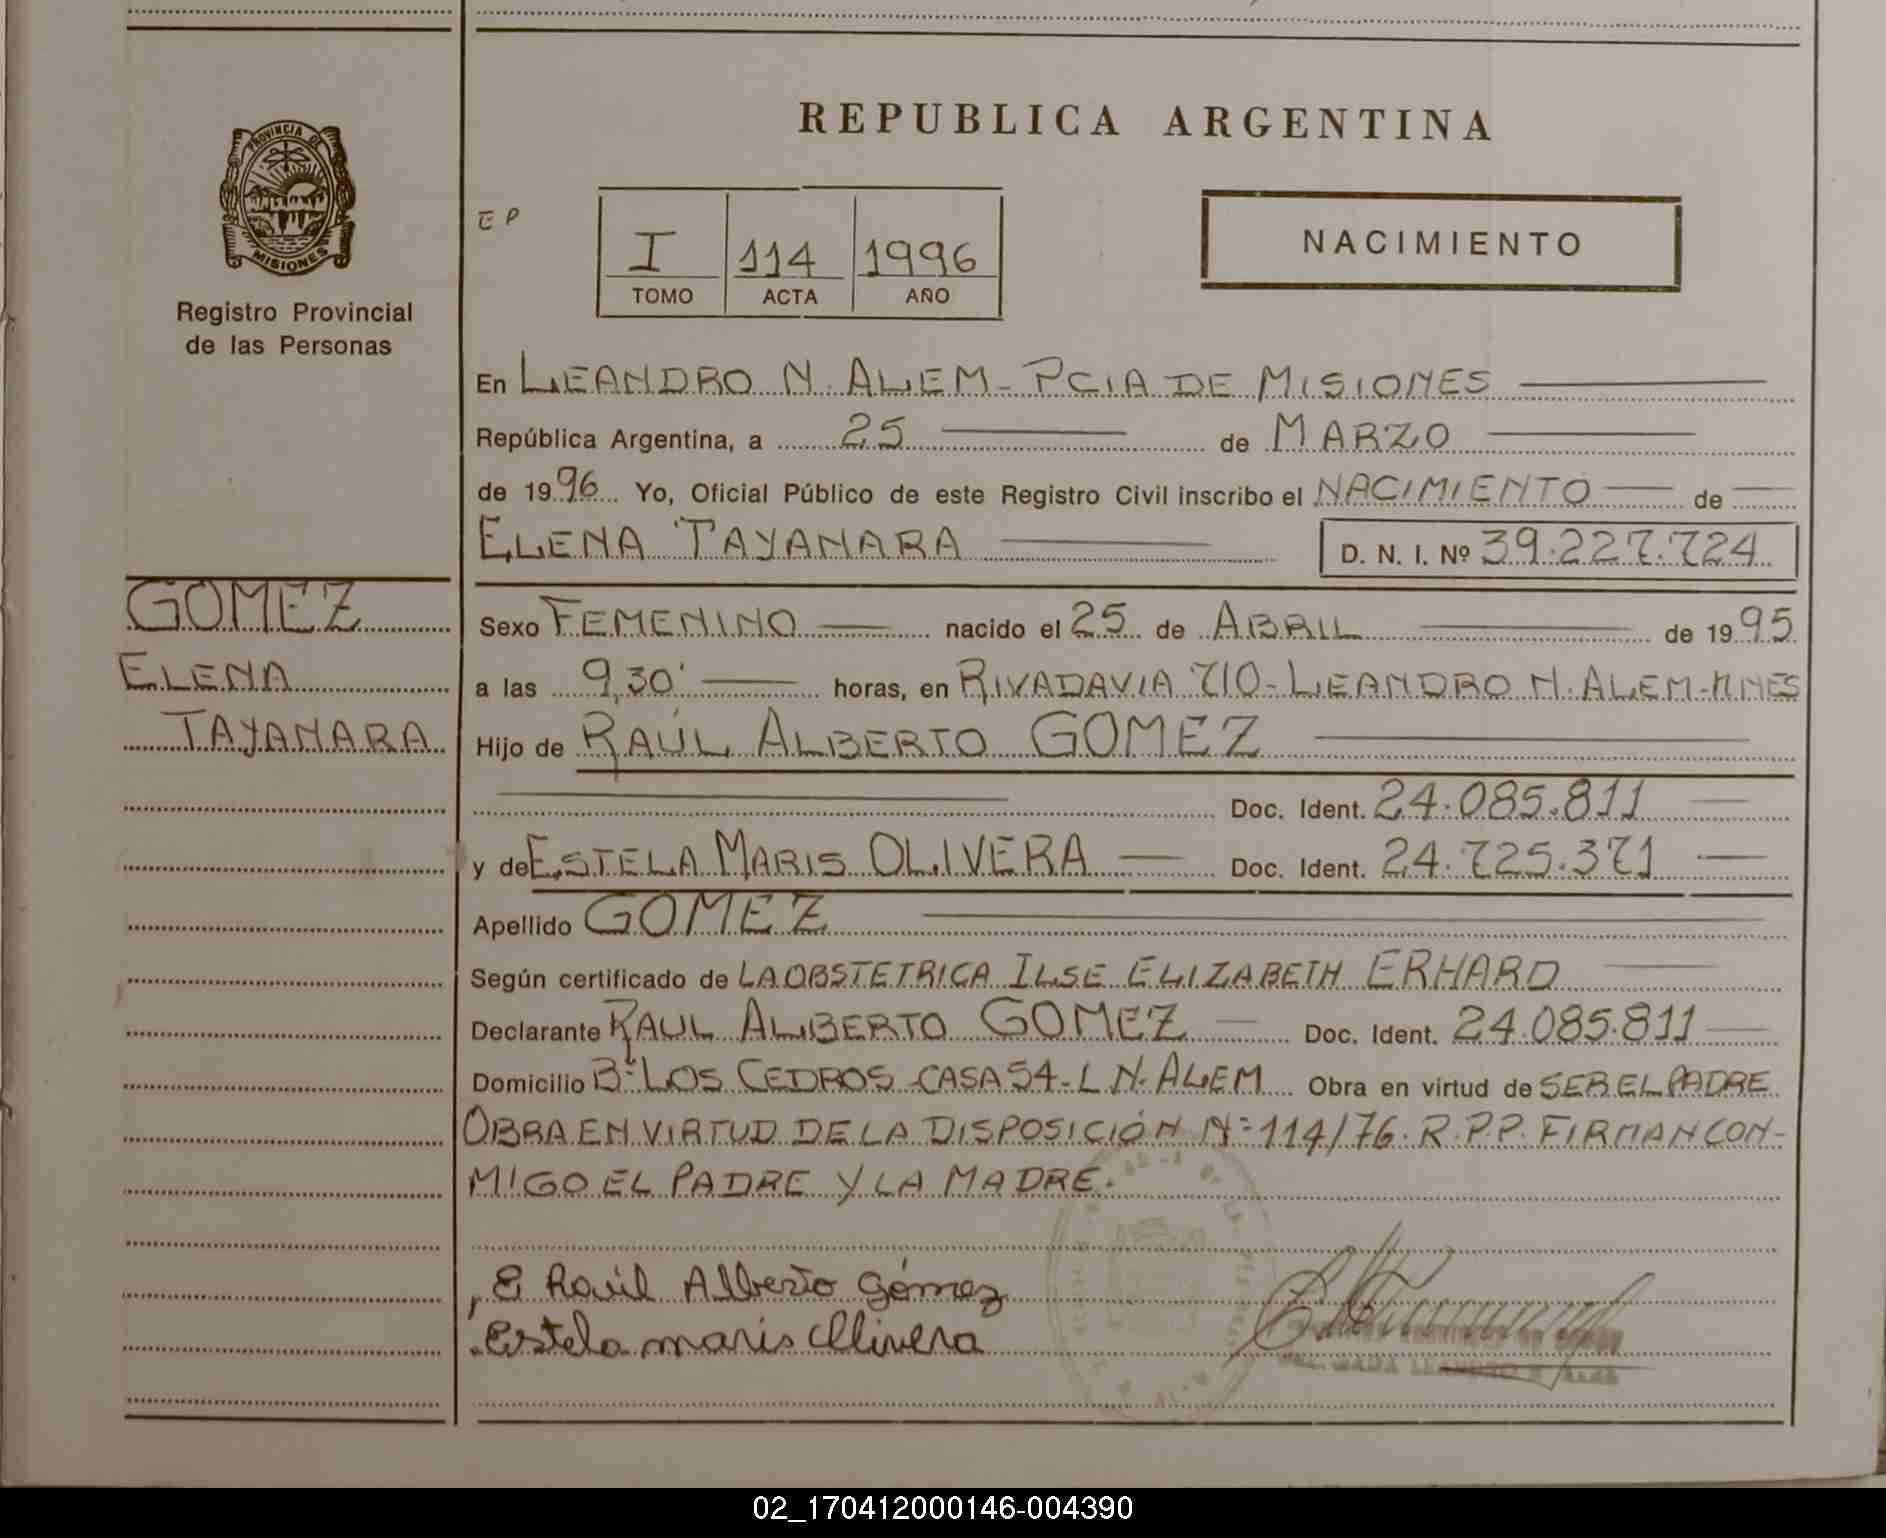 REPUBLICA ARGENTINA
PROVINCIA DE
MISIONES
Registro Provincial
de las Personas
EP
I 114 1996
TOMO ACTA AÑO
NACIMIENTO
En LEANDRO N. ALEM - PCIA DE MISIONES
República Argentina, a 25 de MARZO
de 1996 Yo, Oficial Público de este Registro Civil inscribo el NACIMIENTO de
ELENA TAYANARA D. N. I. Nº 39.227.724
GOMEZ
ELENA
TAYANARA
Sexo FEMENINO nacido el 25 de ABRIL de 1995
a las 9,30' horas, en RIVADAVIA 710 - LEANDRO N. ALEM - MNES
Hijo de RAÚL ALBERTO GOMEZ
Doc. Ident. 24.085.811
y de ESTELA MARIS OLIVERA Doc. Ident. 24.725.371
Apellido GOMEZ
Según certificado de LA OBSTETRICA ILSE ELIZABETH ERHARD
Declarante RAUL ALBERTO GOMEZ Doc. Ident. 24.085.811
Domicilio Bº LOS CEDROS CASA 54 - L N. ALEM Obra en virtud de SER EL PADRE
OBRA EN VIRTUD DE LA DISPOSICIÓN Nº 114/76. R.P.P. FIRMAN CON-
MIGO EL PADRE Y LA MADRE.
Raúl Alberto Gómez
Estela maris Olivera
02_170412000146-004390